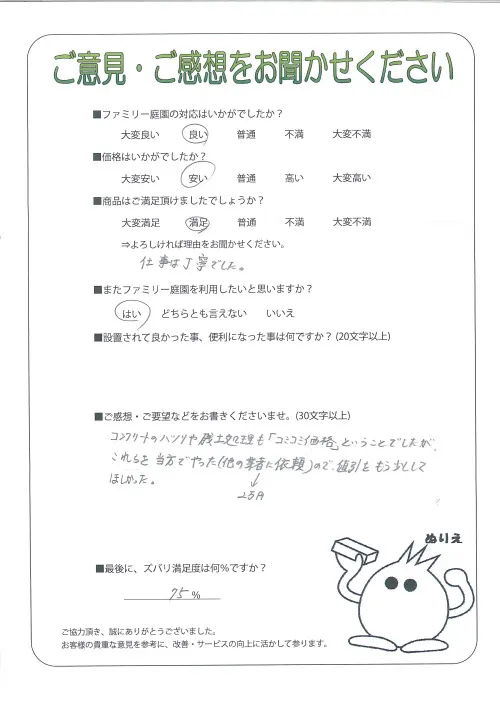 ご意見・ご感想をお聞かせください
■ファミリー庭園の対応はいかがでしたか？
大変良い 良い 普通 不満 大変不満
■価格はいかがでしたか？
大変安い 安い 普通 高い 大変高い
■商品はご満足頂けましたでしょうか？
大変満足 満足 普通 不満 大変不満
⇒よろしければ理由をお聞かせください。
仕事は丁寧でした。
■またファミリー庭園を利用したいと思いますか？
はい どちらとも言えない いいえ
■設置されて良かった事、便利になった事は何ですか？(20文字以上)
■ご感想・ご要望などをお書きくださいませ。(30文字以上)
コンクリートのハツリや残土処理も「コミコミ価格」ということでしたが、
これらを当方でやった(他の業者に依頼)ので、値引をもう少しして
ほしかった。
2万円
ぬりえ
■最後に、ズバリ満足度は何%ですか？
75%
ご協力頂き、誠にありがとうございました。
お客様の貴重な意見を参考に、改善・サービスの向上に活かして参ります。